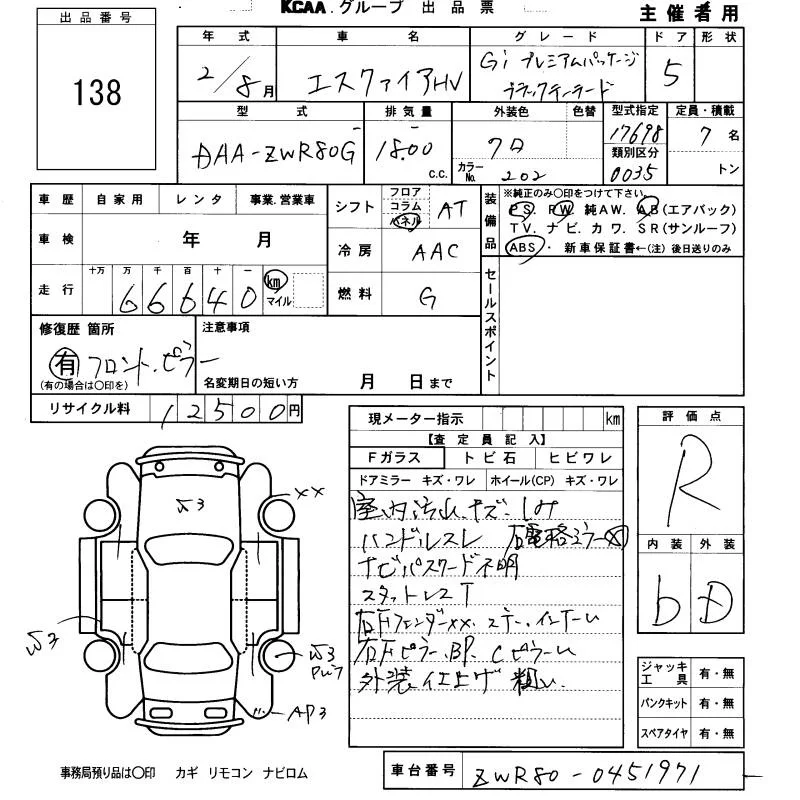 KCAA.グループ 出品票
主催者用
出品番号
138
年式 車名 グレード ドア 形状
2/8月 エスクァイアHV Gi プレミアムパッケージ 5
ブラックテーラード
型式 排気量 外装色 色替 型式指定 定員・積載
DAA-ZWR80G 1800 c.c. クロ 17698 7名
カラーNo. 202
類別区分
0035 トン
車歴 自家用 レンタ 事業.営業車
シフト フロア コラム パネル AT
装備品
※純正のみ○印をつけて下さい。
PS. PW. 純AW. AB(エアバック)
TV. ナビ. カワ. SR(サンルーフ)
ABS・ 新車保証書←(注)後日送りのみ
車検 年 月
冷房 AAC
走行 十万 万 千 百 十 一
66640 km マイル
燃料 G
セールスポイント
修復歴 箇所
有 フロント.ピラー
(有の場合は○印を)
注意事項
名変期日の短い方 月 日まで
リサイクル料 12500円
現メーター指示 km
【査定員記入】
Fガラス トビ石 ヒビワレ
ドアミラー キズ・ワレ ホイール(CP) キズ・ワレ
室内汚れ.キズ.しみ
ハンドルスレ 右電格ミラー
ナビパスワード不明
スタットレスT
右Fフェンダーxx.
右Fピラー.BP. Cピラー
外装仕上げ 粗い.
評価点
R
内装 外装
b D
ジャッキ工具 有・無
パンクキット 有・無
スペアタイヤ 有・無
xx
W3
W3
W3
AP3
事務局預り品は○印 カギ リモコン ナビロム
車台番号 ZWR80-0451971